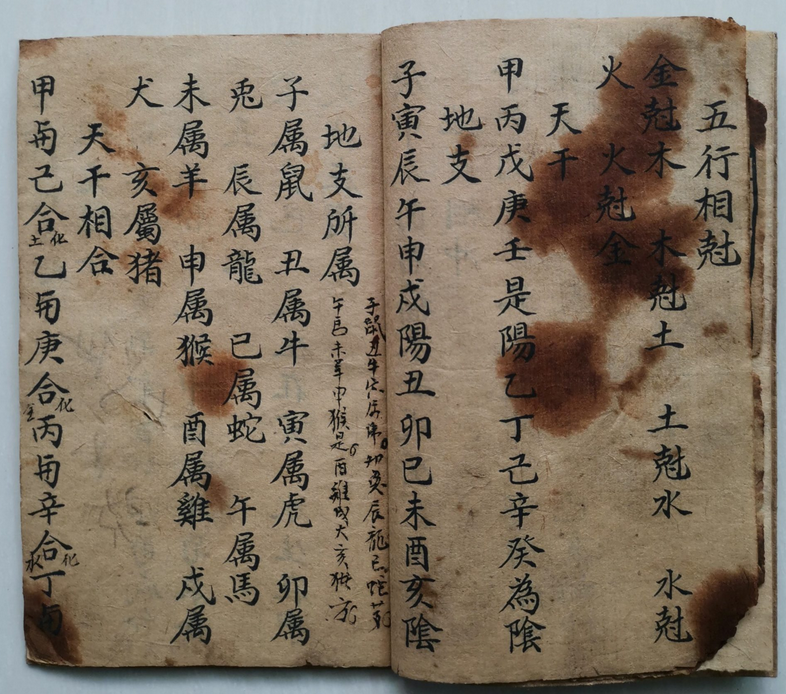 五行相尅
金尅木　木尅土　土尅水　水尅
火　火尅金
天干
甲丙戊庚壬是陽乙丁己辛癸為陰
地支
子寅辰午申戌陽丑卯巳未酉亥陰
子鼠丑牛寅虎卯兔辰龍巳蛇
午馬未羊申猴是酉雞戌犬亥猪
地支所属
子属鼠　丑属牛　寅属虎　卯属
兎　辰属龍　巳属蛇　午属馬
未属羊　申属猴　酉属雞　戍属
犬　亥屬猪
天干相合
甲与己合化土乙与庚合化金丙与辛合化水丁与